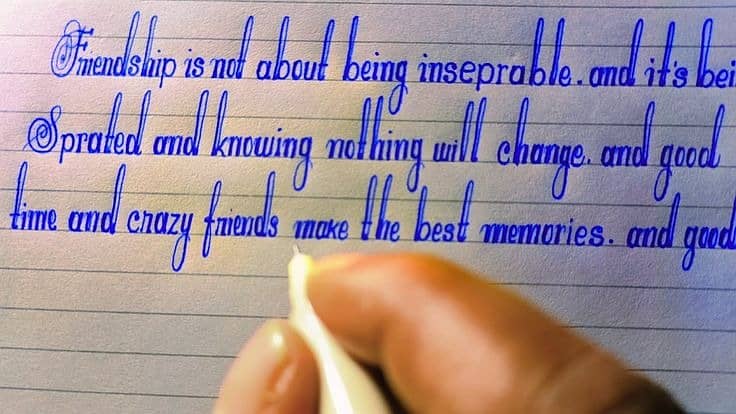 Friendship is not about being inseprable. and it's bei
Sprated and knowing nothing will change. and good
time and crazy friends make the best memories. and good